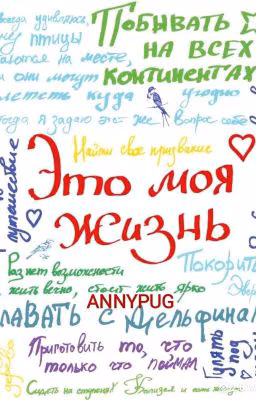 всегда удивлялась,
птицы
ПОБЫВАТЬ
НА ВСЕХ
КОНТИНЕНТАХ
на месте,
они могут
лететь куда угодно
тогда я задаю это же вопрос себе
Найти свое призвание
Это моя
жизнь
путешествие
Раз нет возможности
жить вечно, стоит жить ярко
Покорить
ANNYPUG
ПЛАВАТЬ С ДЕЛЬФИНА
Приготовить то, что
только что поймал
Гулять
под
дерево
Сидеть на ступенях